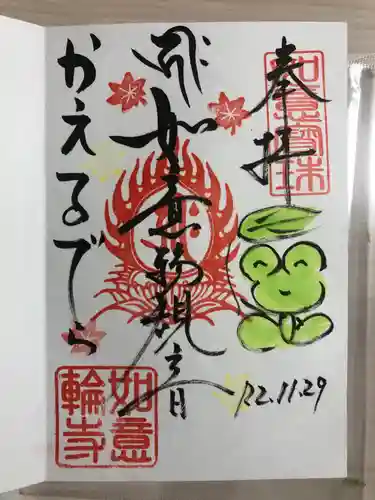 奉拝
如意宝珠
如意輪観音
かえるでら
如意
輪寺
'22.11.29